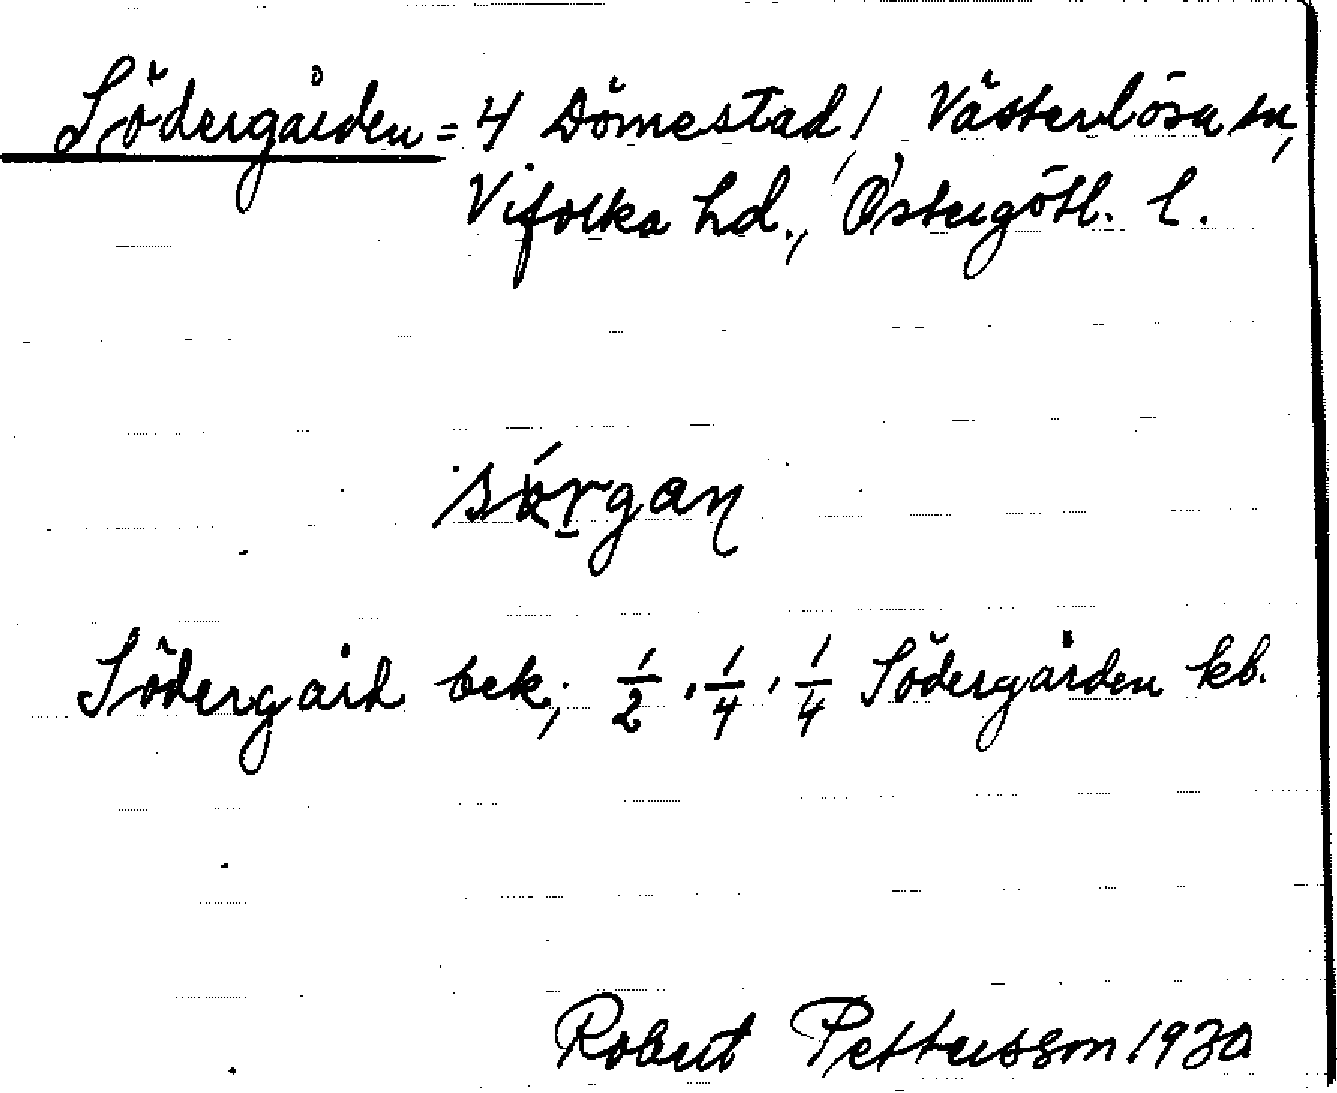 Södergården = 4 Dömestad, Västerlösa sn,
Vifolka hd., Östergötl. l.
Södergård bek.; 1/2, 1/4, 1/4 Södergården kb.
Robert Pettersson 1930